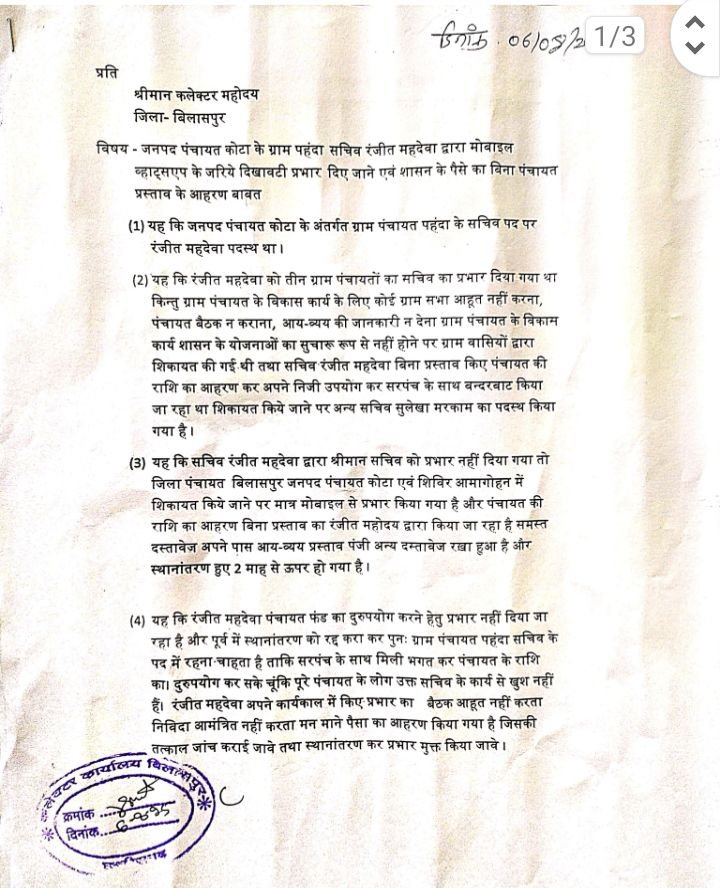 दिनांक . 06/08/2
1/3
प्रति
श्रीमान कलेक्टर महोदय
जिला- बिलासपुर
विषय - जनपद पंचायत कोटा के ग्राम पहंदा सचिव रंजीत महदेवा द्वारा मोबाइल
व्हाट्सएप के जरिये दिखावटी प्रभार दिए जाने एवं शासन के पैसे का बिना पंचायत
प्रस्ताव के आहरण बाबत
(1) यह कि जनपद पंचायत कोटा के अंतर्गत ग्राम पंचायत पहंदा के सचिव पद पर
रंजीत महदेवा पदस्थ था।
(2) यह कि रंजीत महदेवा को तीन ग्राम पंचायतों का सचिव का प्रभार दिया गया था
किन्तु ग्राम पंचायत के विकास कार्य के लिए कोई ग्राम सभा आहूत नहीं करना,
पंचायत बैठक न कराना, आय-व्यय की जानकारी न देना ग्राम पंचायत के विकास
कार्य शासन के योजनाओं का सुचारू रूप से नहीं होने पर ग्राम वासियों द्वारा
शिकायत की गई थी तथा सचिव रंजीत महदेवा बिना प्रस्ताव किए पंचायत की
राशि का आहरण कर अपने निजी उपयोग कर सरपंच के साथ बन्दरबाट किया
जा रहा था शिकायत किये जाने पर अन्य सचिव सुलेखा मरकाम का पदस्थ किया
गया है।
(3) यह कि सचिव रंजीत महदेवा द्वारा श्रीमान सचिव को प्रभार नहीं दिया गया तो
जिला पंचायत बिलासपुर जनपद पंचायत कोटा एवं शिविर आमागोहन में
शिकायत किये जाने पर मात्र मोबाइल से प्रभार किया गया है और पंचायत की
राशि का आहरण बिना प्रस्ताव का रंजीत महोदय द्वारा किया जा रहा है समस्त
दस्तावेज अपने पास आय-व्यय प्रस्ताव पंजी अन्य दस्तावेज रखा हुआ है और
स्थानांतरण हुए 2 माह से ऊपर हो गया है।
(4) यह कि रंजीत महदेवा पंचायत फंड का दुरुपयोग करने हेतु प्रभार नहीं दिया जा
रहा है और पूर्व में स्थानांतरण को रद्द करा कर पुनः ग्राम पंचायत पहंदा सचिव के
पद में रहना चाहता है ताकि सरपंच के साथ मिली भगत कर पंचायत के राशि
का। दुरुपयोग कर सके चूंकि पूरे पंचायत के लोग उक्त सचिव के कार्य से खुश नहीं
हैं। रंजीत महदेवा अपने कार्यकाल में किए प्रभार का बैठक आहूत नहीं करता
निविदा आमंत्रित नहीं करता मन माने पैसा का आहरण किया गया है जिसकी
तत्काल जांच कराई जावे तथा स्थानांतरण कर प्रभार मुक्त किया जावे।
कलेक्टर कार्यालय बिलासपुर
क्रमांक
दिनांक